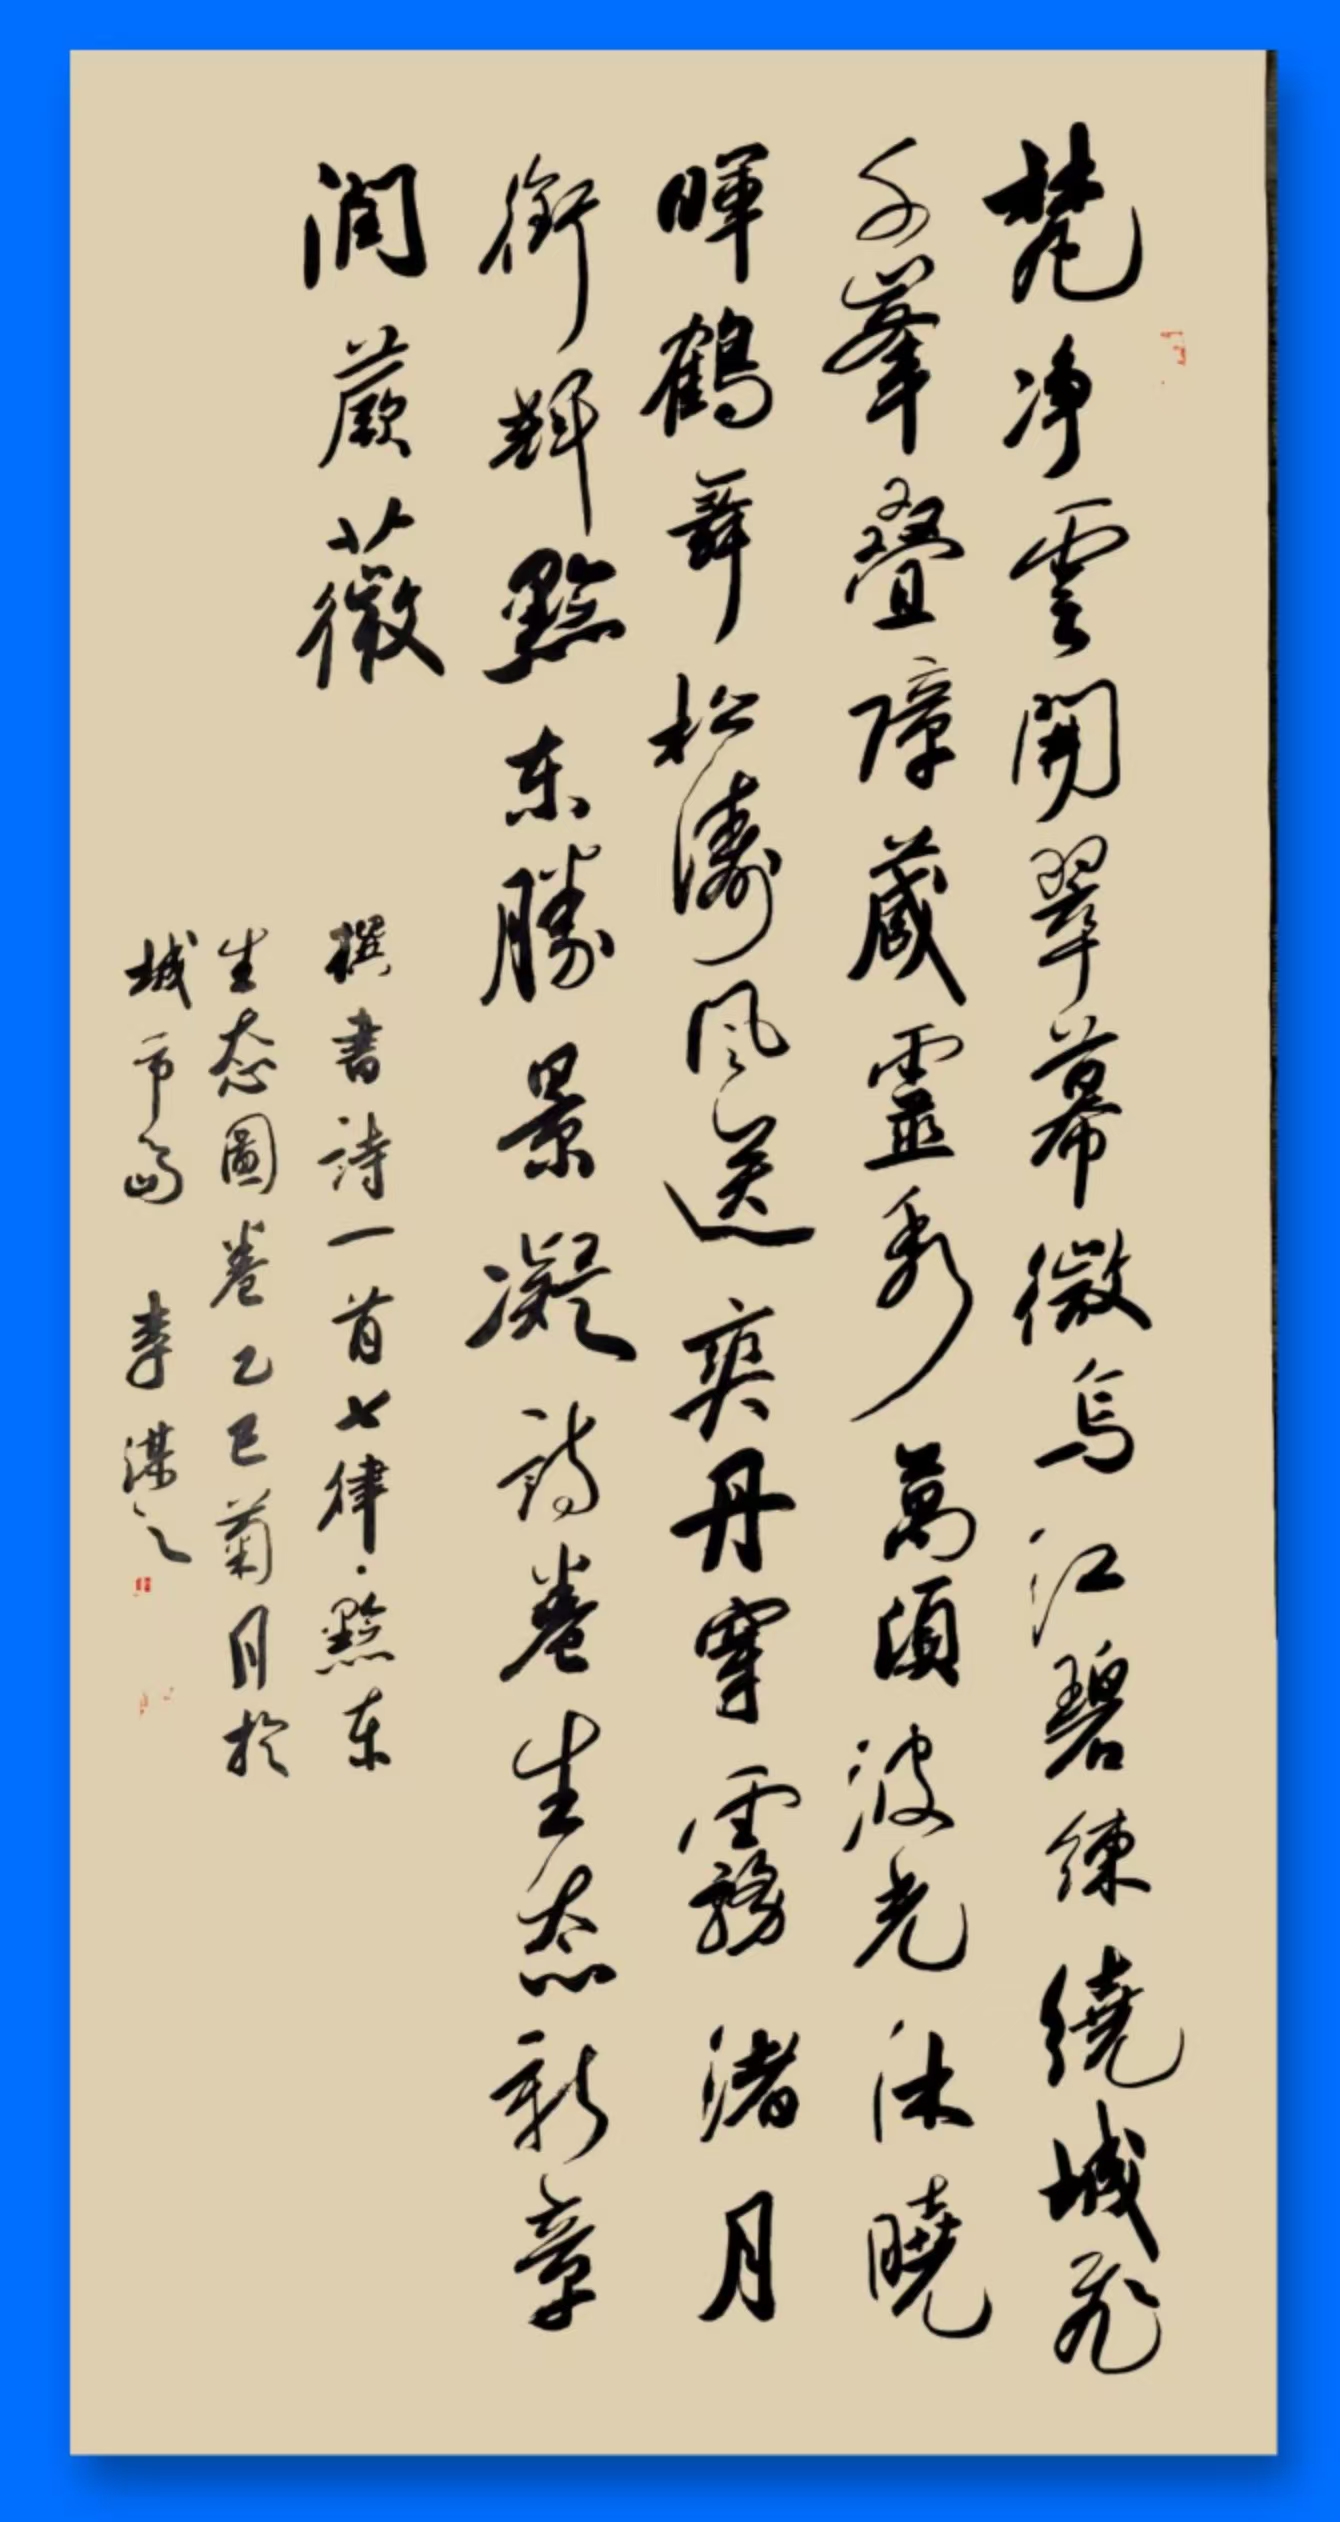 梵净雲開翠幕微烏江碧練繞城飛
千峯疊障藏靈秀萬頃波光沐曉
暉鶴舞松濤風送爽丹穿雲霧渚月
銜輝黔东勝景凝詩卷生态新章
潤蕨薇
撰書詩一首七律·黔东
生态圖卷乙巳菊月於
城市 李谋之